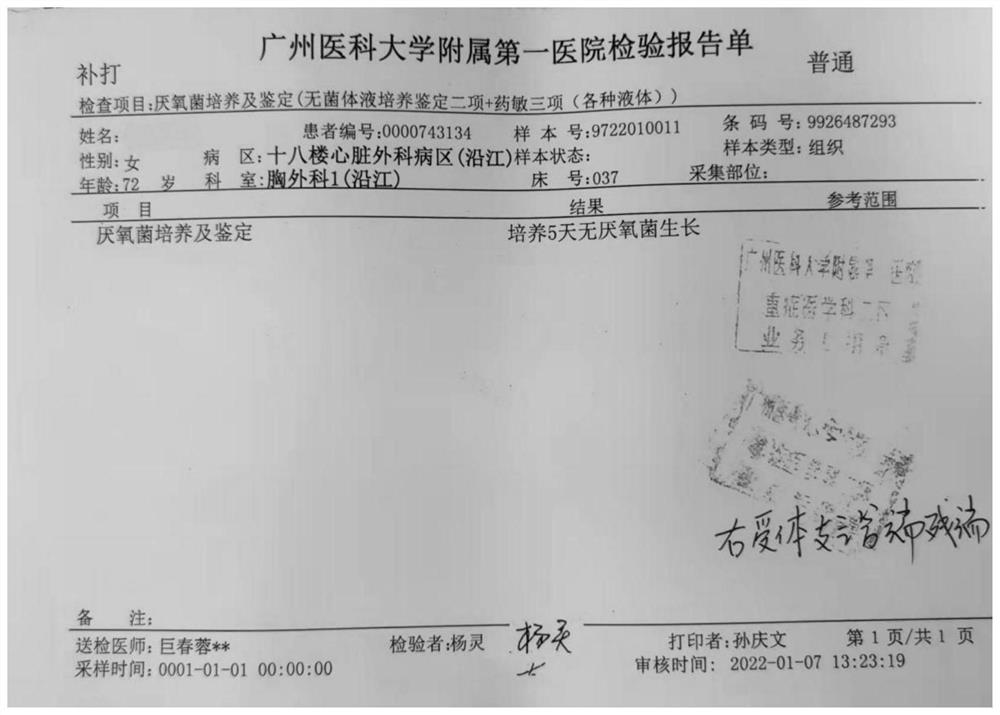 广州医科大学附属第一医院检验报告单
补打 普通
检查项目:厌氧菌培养及鉴定(无菌体液培养鉴定二项+药敏三项（各种液体）)
姓名: 患者编号:0000743134 样 本 号:9722010011 条 码 号: 9926487293
性别: 女 病 区: 十八楼心脏外科病区(沿江) 样本状态: 样本类型: 组织
年龄:72 岁 科 室:胸外科1(沿江) 床 号:037 采集部位:
项 目 结果 参考范围
厌氧菌培养及鉴定 培养5天无厌氧菌生长
广州医科大学附属 医院
重症医学科二区
业务
右受体支 残端
备 注:
送检医师: 巨春蓉** 检验者:杨灵 杨灵 打印者:孙庆文 第 1 页/共 1 页
采样时间: 0001-01-01 00:00:00 审核时间: 2022-01-07 13:23:19